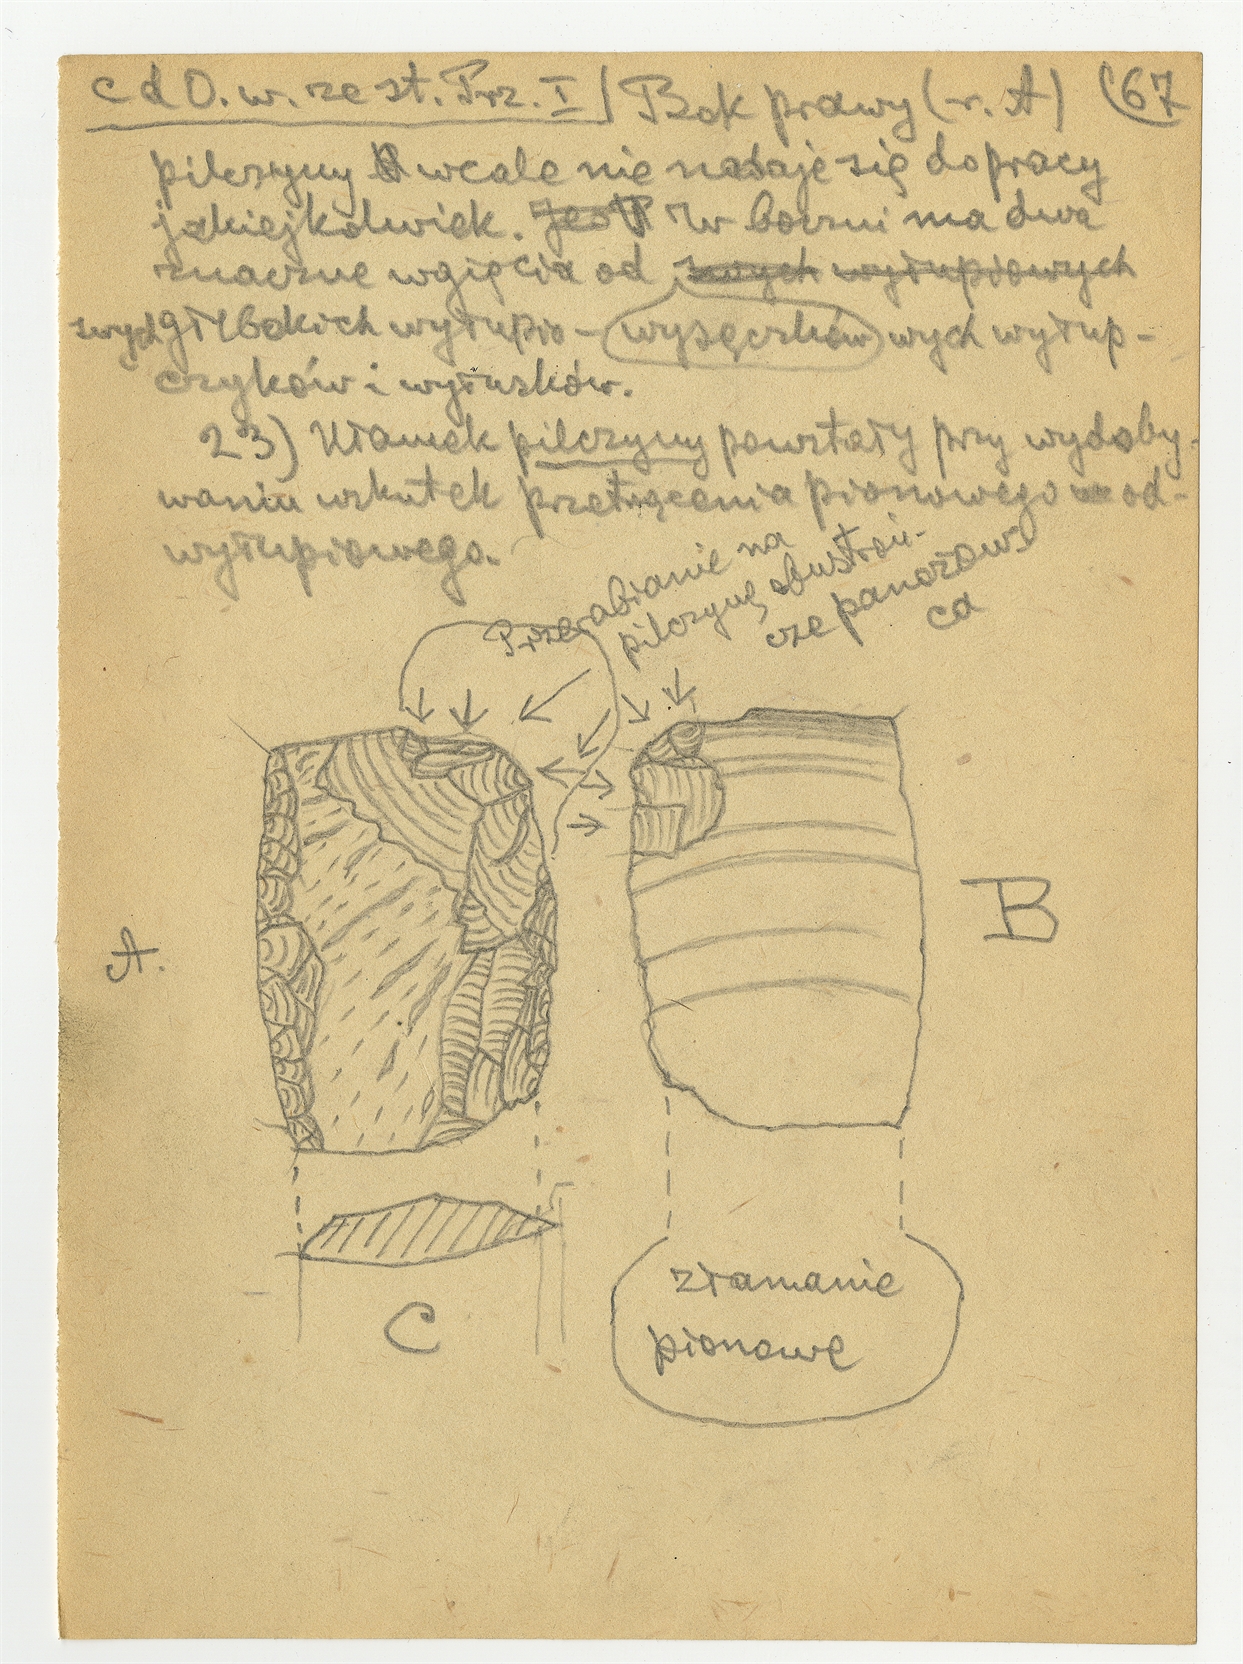 c d O. w. ze st. Prz. I / Bok prawy (r. A) (67
pilczyny wcale nie nadaje się do pracy
jakiejkolwiek. Jest W boczni ma dwa
znaczne wgięcia od swych wyłupiowych
swych głębokich wyłupio- wysęczków wych wyłup-
czyków i wyłusków.
23) Ułamek pilczyny powstały przy wydoby-
waniu wskutek przetrącenia pionowego od-
wyłupiowego.
Przerabianie na
pilczynę obustroń-
cze panozows
ca
A.
B
C
złamanie
pionowe